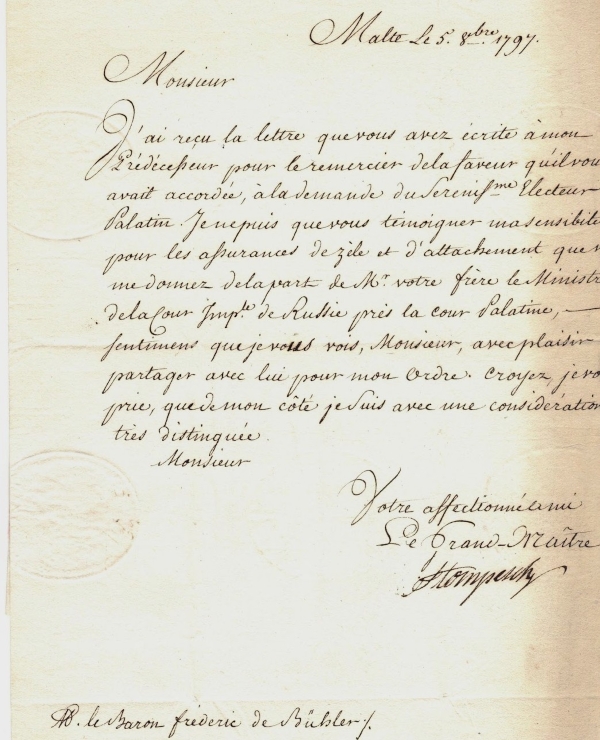 Malte Le 5. 8bre. 1797.
Monsieur
J'ai reçu la lettre que vous avez écrite à mon
Prédécesseur pour le remercier de la faveur qu'il vou
avait accordée, à la demande du Sereniss.me Electeur
Palatin. Je ne puis que vous témoigner ma sensibilit
pour les assurances de zèle et d'attachement que v
me donnez de la part de Mr. votre frère le Ministr
de la Cour Imp.le de Russie près la cour Palatine, —
sentimens que je vous vois, Monsieur, avec plaisir
partager avec lui pour mon Ordre. Croyez, je vo
prie, que de mon côté je suis avec une considération
très distinguée
Monsieur
Votre affectionné ami
Le Grand-Maître
Hompesch
le Baron fréderic de Bühler /.